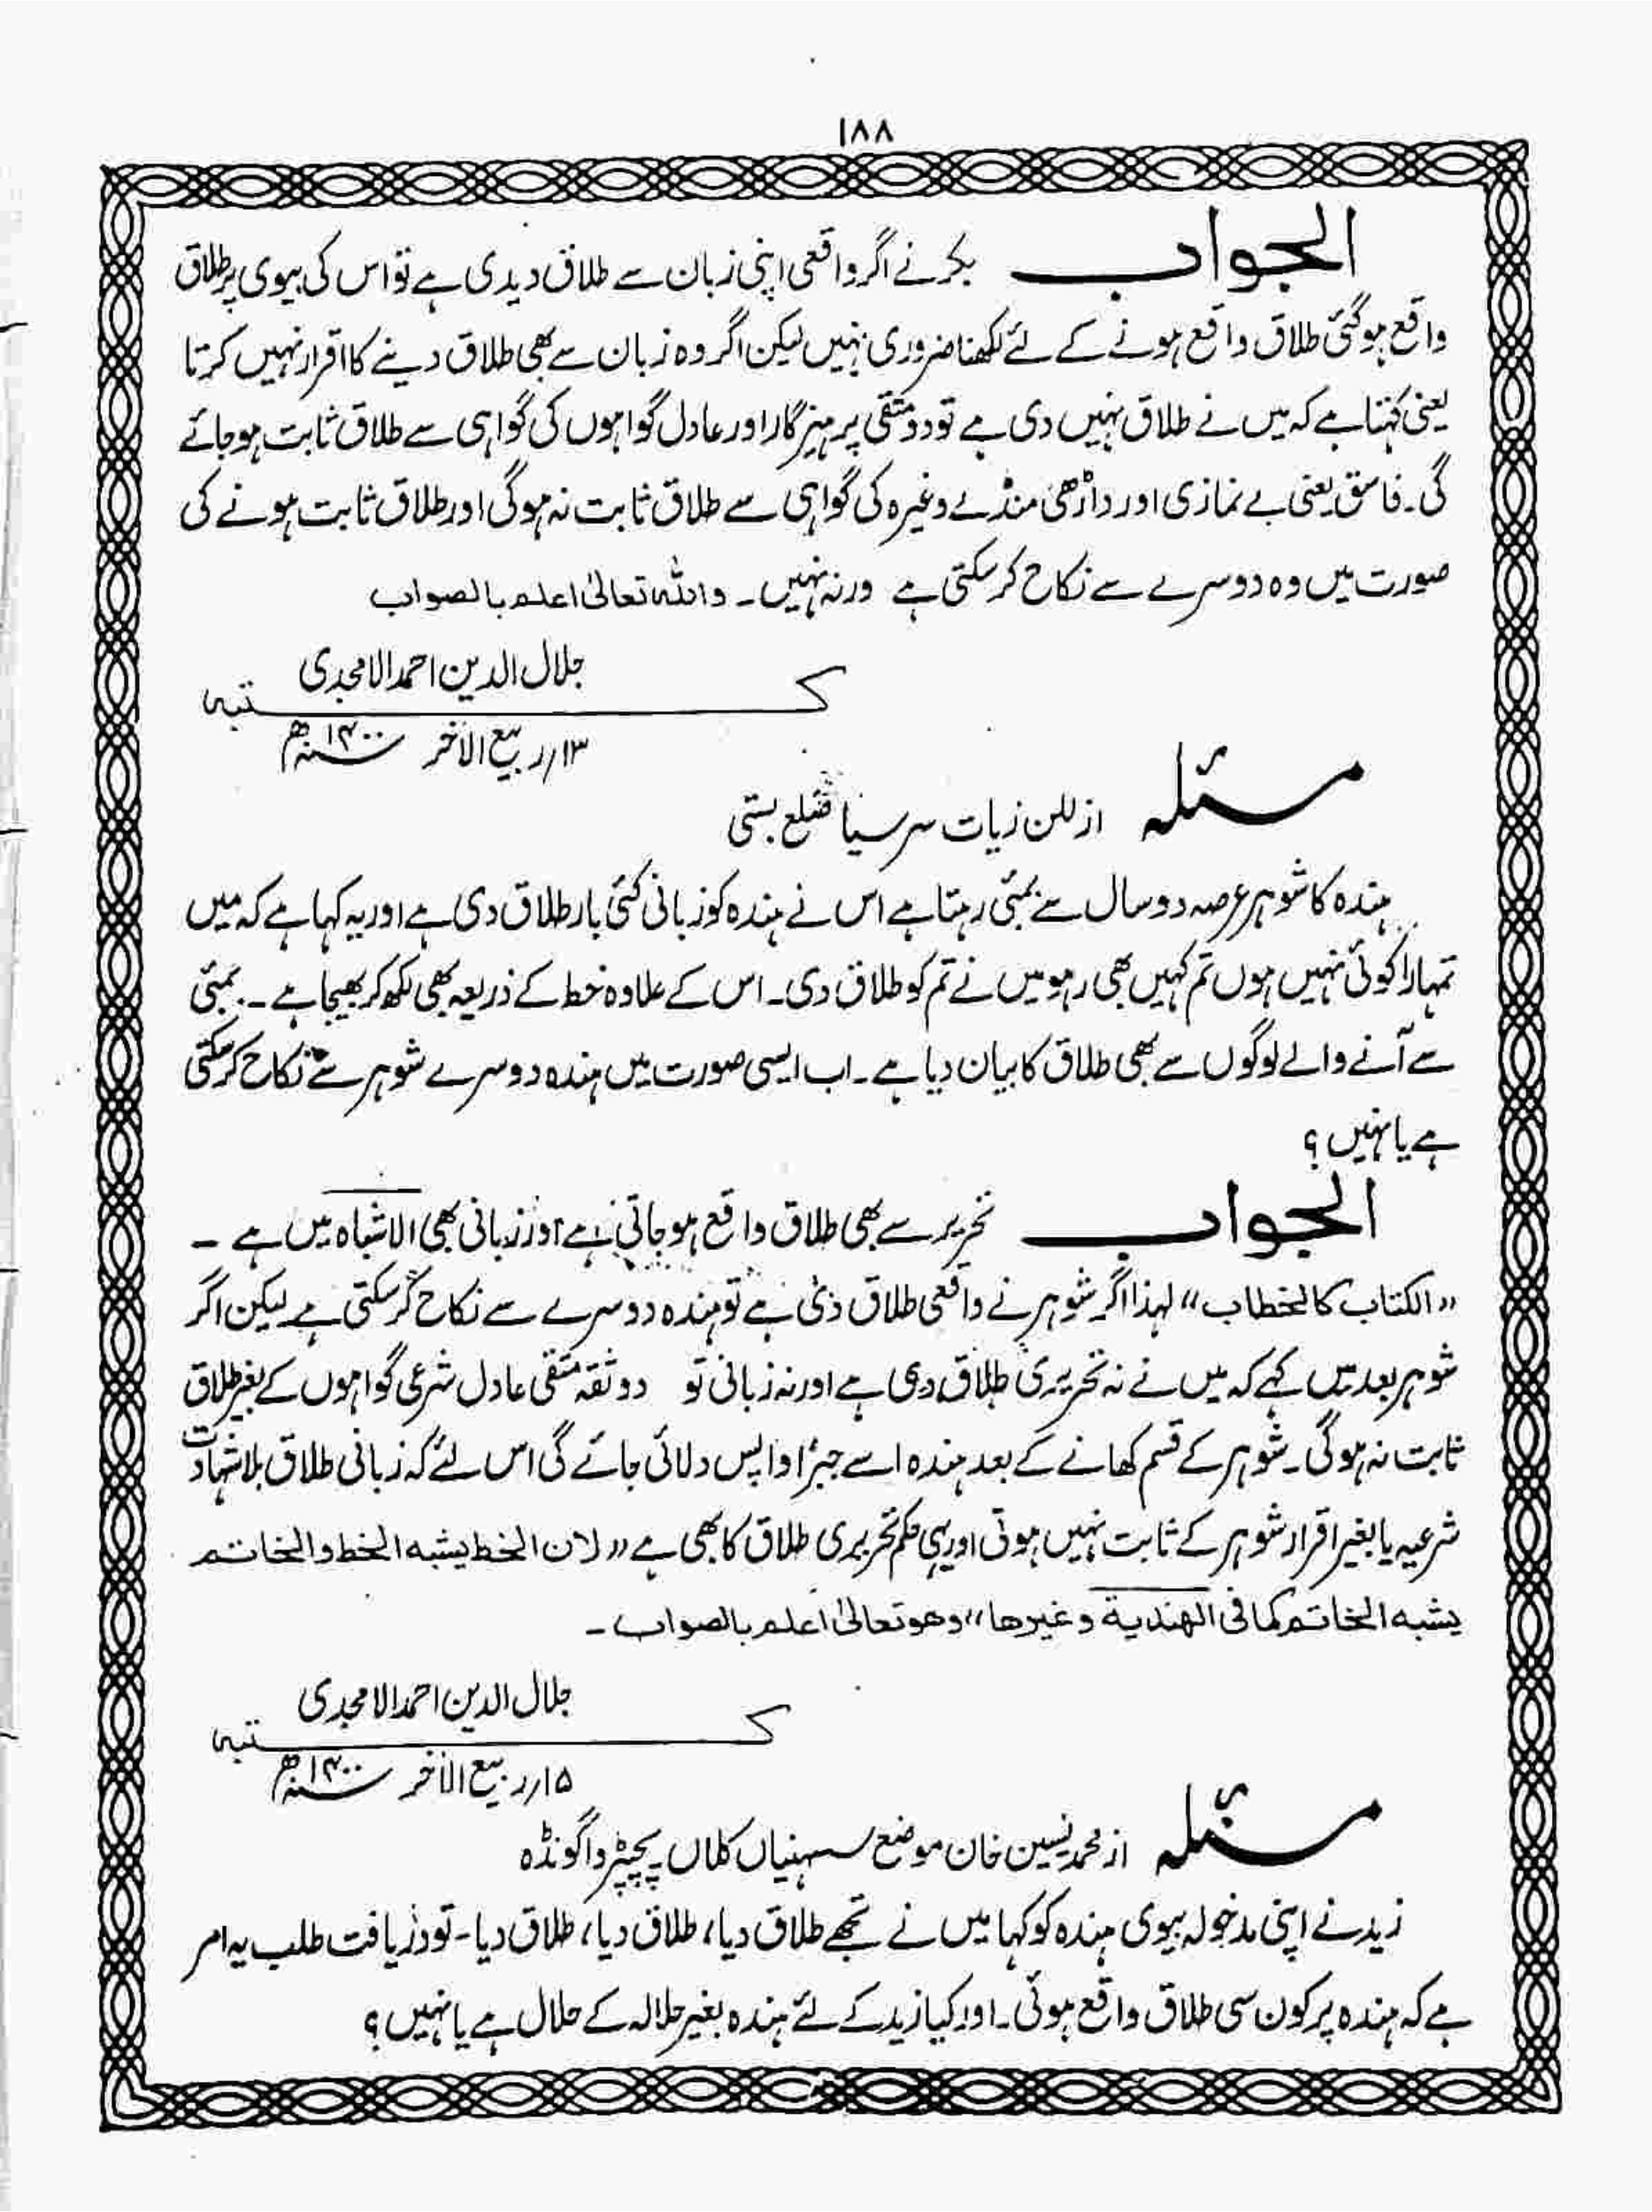 ۱۸۸
الجواب بکر نے اگر واقعی اپنی زبان سے طلاق دیدی ہے تو اس کی بیوی پر طلاق
واقع ہوگئی طلاق واقع ہونے کے لئے لکھنا ضروری نہیں لیکن اگر وہ زبان سے بھی طلاق دینے کا اقرار نہیں کرتا
یعنی کہتا ہے کہ میں نے طلاق نہیں دی ہے تو دو متقی پرہیزگار اور عادل گواہوں کی گواہی سے طلاق ثابت ہوجائے
گی۔ فاسق یعنی بے نمازی اور داڑھی منڈے وغیرہ کی گواہی سے طلاق ثابت نہ ہوگی اور طلاق ثابت ہونے کی
صورت میں وہ دوسرے سے نکاح کرسکتی ہے ورنہ نہیں۔ واللہ تعالیٰ اعلم بالصواب
جلال الدین احمد الامجدی
کتبہ
۱۳؍ ربیع الآخر ۱۴۰۰ھ
مسئلہ از للن زیات سرسیا ضلع بستی
ہندہ کا شوہر عرصہ دو سال سے بمبئی رہتا ہے اس نے ہندہ کو زبانی کئی بار طلاق دی ہے اور یہ کہا ہے کہ میں
تمہارا کوئی نہیں ہوں تم کہیں بھی رہو میں نے تم کو طلاق دی۔ اس کے علاوہ خط کے ذریعہ بھی لکھ کر بھیجا ہے۔ بمبئی
سے آنے والے لوگوں سے بھی طلاق کا بیان دیا ہے۔ اب ایسی صورت میں ہندہ دوسرے شوہر سے نکاح کرسکتی
ہے یا نہیں؟
الجواب تحریر سے بھی طلاق واقع ہوجاتی ہے اور زبانی بھی الاشباہ میں ہے ۔
"الکتاب کالخطاب" لہذا اگر شوہر نے واقعی طلاق دی ہے تو ہندہ دوسرے سے نکاح کرسکتی ہے لیکن اگر
شوہر بعد میں کہے کہ میں نے نہ تحریری طلاق دی ہے اور نہ زبانی تو دو ثقہ متقی عادل شرعی گواہوں کے بغیر طلاق
ثابت نہ ہوگی۔ شوہر کے قسم کھانے کے بعد ہندہ اسے جبراً واپس دلائی جائے گی اس لئے کہ زبانی طلاق بلا شہادت
شرعیہ یا بغیر اقرار شوہر کے ثابت نہیں ہوتی اور یہی حکم تحریری طلاق کا بھی ہے "لان الخط یشبہ الخط والخاتم
یشبہ الخاتم کما فی الھندیۃ وغیرھا" وھو تعالیٰ اعلم بالصواب ۔
جلال الدین احمد الامجدی
کتبہ
۱۵؍ ربیع الآخر ۱۴۰۰ھ
مسئلہ از محمد یٰسین خان موضع سہنیاں کلاں پچپڑوا گونڈہ
زید نے اپنی مدخولہ بیوی ہندہ کو کہا میں نے تجھے طلاق دیا، طلاق دیا، طلاق دیا۔ تو دریافت طلب یہ امر
ہے کہ ہندہ پر کون سی طلاق واقع ہوئی۔ اور کیا زید کے لئے ہندہ بغیر حلالہ کے حلال ہے یا نہیں؟